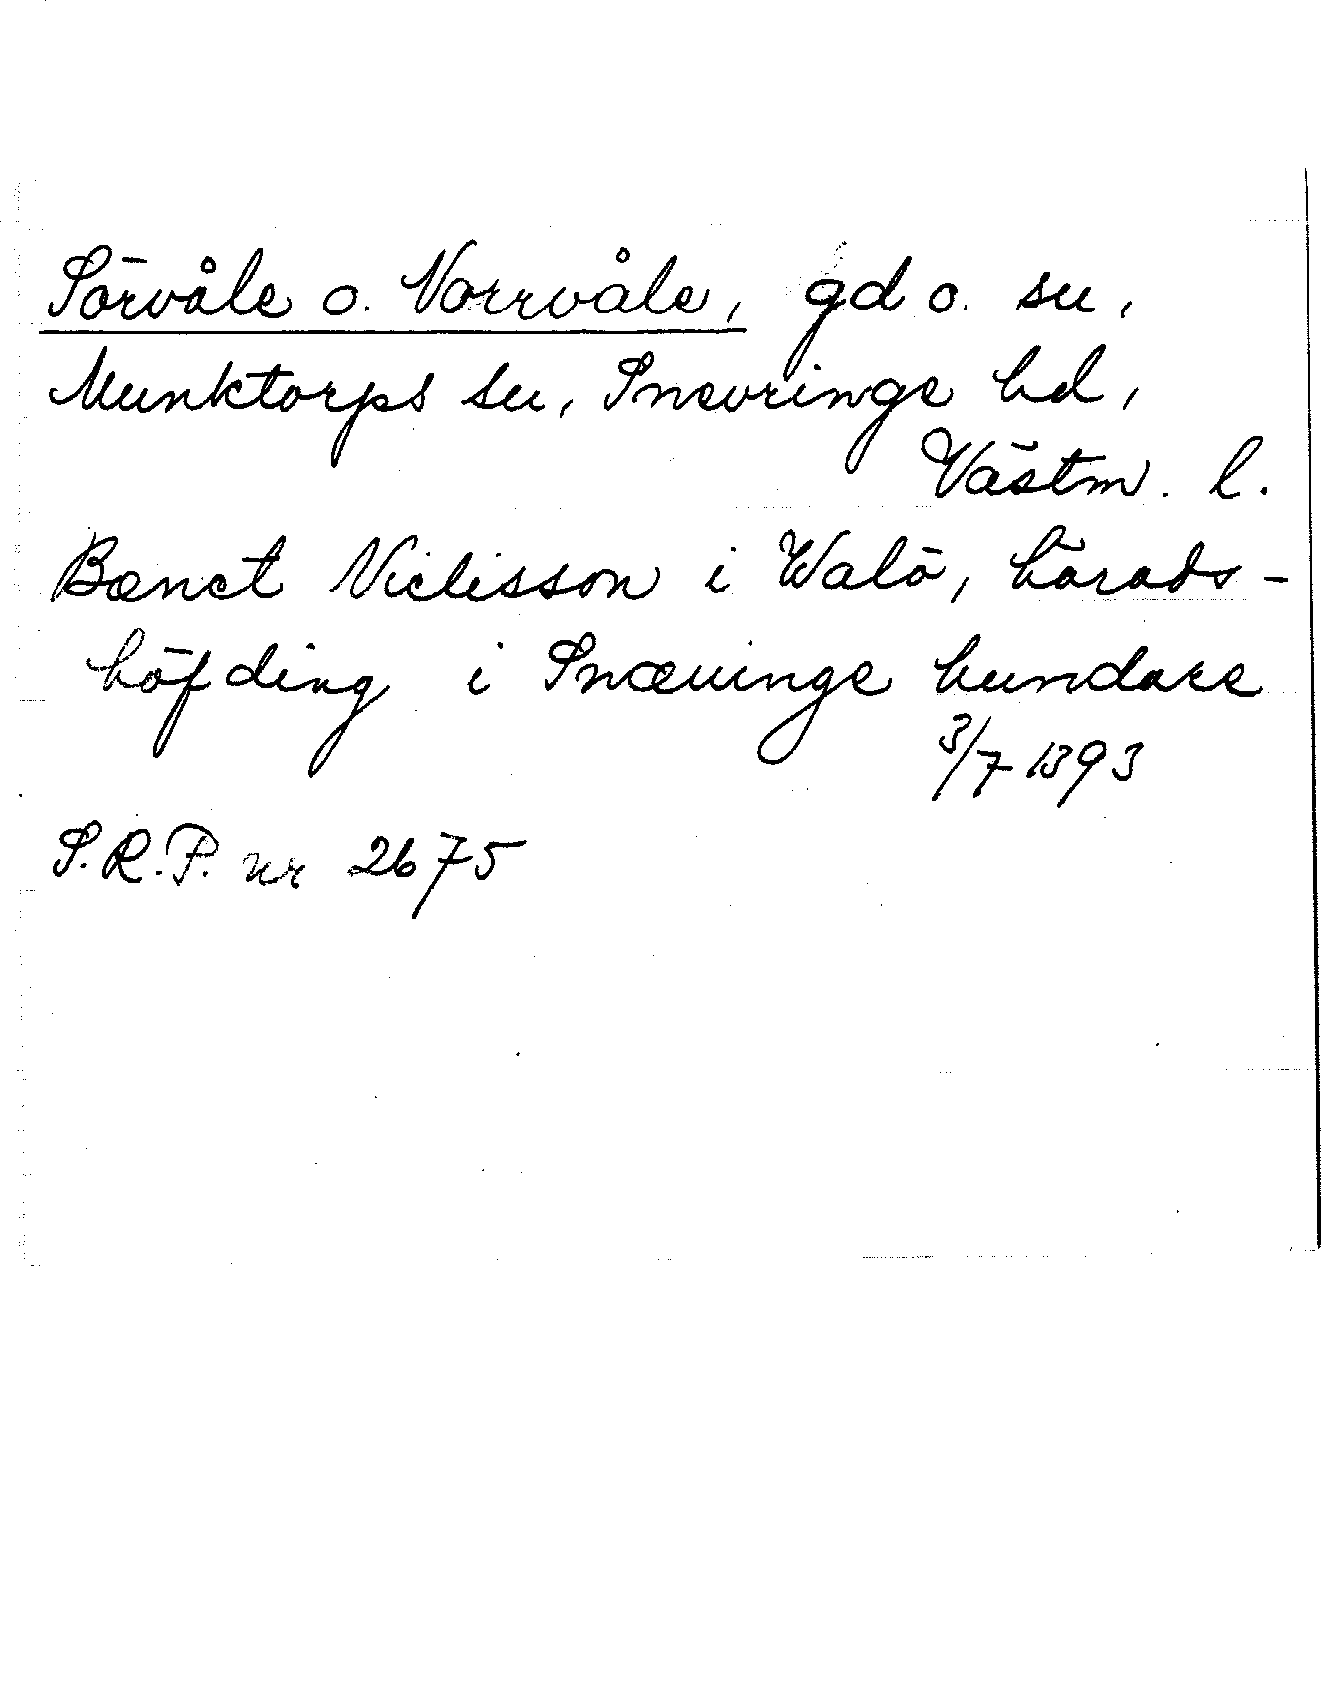 Sörvåle o. Norrvåle, gd o. su,
Munktorps su, Snevringe hd,
Västm. l.
Bænct Niclisson i Walö, härads-
höfding i Snæuinge hundare
3/7 1393
S.R.P. nr 2675